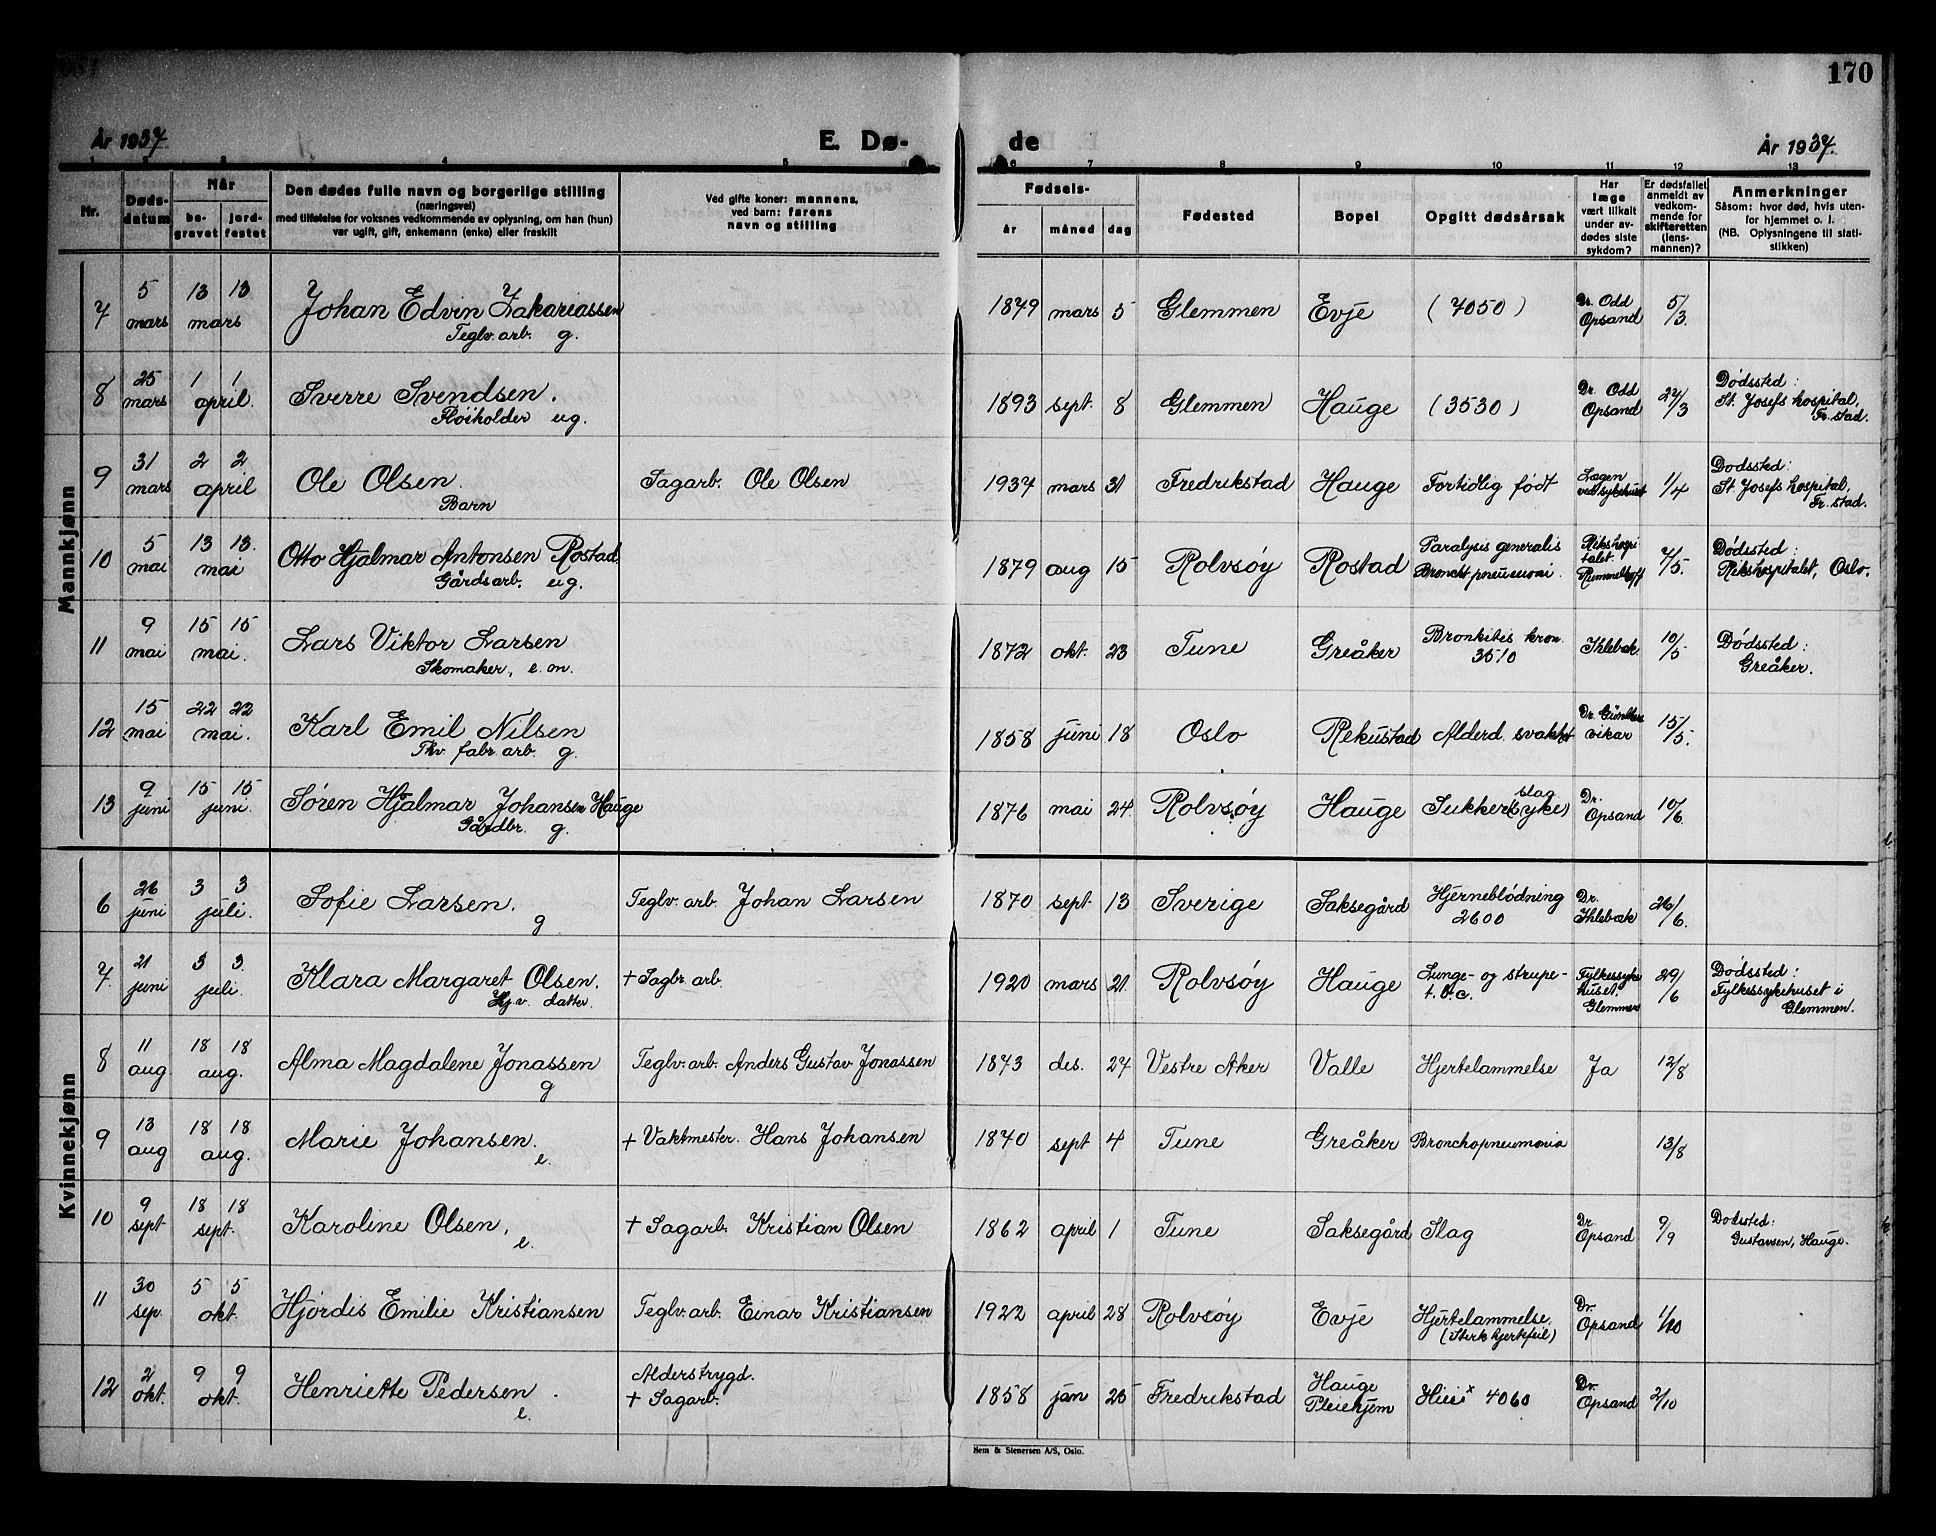 170
År 1937.
E. Dø-
de
År 1937.
1 3 4 5 6 7 8 9 10 11 12 13
Nr.
Døds-
datum
Når
be-
gravet
jord-
festet
Den dødes fulle navn og borgerlige stilling
(næringsvei)
med tilføielse for voksnes vedkommende av oplysning, om han (hun)
var ugift, gift, enkemann (enke) eller fraskilt
Ved gifte koner: mannens,
ved barn: farens
navn og stilling
Fødsels-
år måned dag
Fødested
Bopel
Opgitt dødsårsak
Har
læge
vært tilkalt
under av-
dødes siste
sykdom?
Er dødsfallet
anmeldt av
vedkom-
mende for
skifteretten
(lens-
mannen)?
Anmerkninger
Såsom: hvor død, hvis uten-
for hjemmet o. l.
(NB. Oplysningene til stati-
stikken)
Mannkjønn
7 5 mars 13 13 mars Johan Edvin Zakariassen 1879 mars 5 Glemmen Evje (7050) Dr. Odd Opsand 5/3.
Teglv. arb. g.
8 25 mars 1 1 april. Sverre Svendsen. 1893 sept. 8 Glemmen Hauge (3530) Dr. Odd Opsand 27/3 Dødssted: St. Josefs hospital, Fr. stad.
Fløiholder ug.
9 31 mars 2 2 april Ole Olsen. Sagarb. Ole Olsen 1937 mars 31 Fredrikstad Hauge Fortidlig født Lægen ved sykehuset 1/4 Dødssted: St. Josefs hospital, Fr. stad.
Barn
10 5 mai 13 13. mai Otto Hjalmar Antonsen Rostad. 1879 aug 15 Rolvsøy Rostad Paralysis generalis Rikshospitalet 7/5. Dødssted: Rikshospitalet, Oslo.
Gårdsarb. ug.
11 9 mai 15 15 mai. Lars Viktor Larsen 1872 okt. 23 Tune Greåker Bronkites kron. 3510 Ihlebæk 10/5 Dødssted: Greåker.
Skomaker, e. m.
12 15 mai 22 22 mai. Karl Emil Nilsen 1858 juni 18 Oslo Rekustad Alderd. svakhet vikar 15/5.
fabr. arb. g.
13 9 juni 15 15 juni. Søren Hjalmar Johansen Hauge 1876 mai 24. Rolvsøy Hauge Sukkersyke (slag) Dr. Opsand 10/6.
Gårdbr. g.
Kvinnekjønn
6 26 juni 3 3 juli. Sofie Larsen. Teglv. arb. Johan Larsen 1870 sept. 13 Sverige Saksegård Hjerneblødning 2600 Dr. Ihlebæk 26/6.
g
7. 21 juni 3 3. juli. Klara Margaret Olsen. + Sagbr. arb. 1920 mars 21 Rolvsøy Hauge Lunge- og strupe- t.b.c. Fylkessykehuset. Glemmen 29/6 Dødssted: Fylkessykehuset i Glemmen.
Hj.v. datter.
8 11 aug. 18 18 aug. Alma Magdalene Jonassen Teglv. arb. Anders Gustav Jonassen 1873 des. 27 Vestre Aker Valle Hjertelammelse Ja 12/8
g
9 13 aug 18 18 aug. Marie Johansen. + Vaktmester. Hans Johansen 1840 sept 4 Tune Greåker Bronchopneumonia 13/8
e.
10 9 sept. 18 18 sept. Karoline Olsen. + Sagarb. Kristian Olsen 1862 april 1 Tune Saksegård Slag Dr. Opsand 9/9 Dødssted: Gustavsen, Hauge.
e.
11 30 sep. 5 5 okt. Hjørdis Emilie Kristiansen Teglv. arb. Einar Kristiansen 1922 april 28 Rolvsøy Evje Hjertelammelse. (Sterk hjertefeil) Dr. Opsand 1/10
12 2 okt. 9 9 okt. Henriette Pedersen. Alderstrygd. + Sagarb. 1858 jan 25 Fredrikstad Hauge Pleiehjem 4060 Dr. Opsand 2/10
e.
Hem & Stenersen A/S, Oslo.